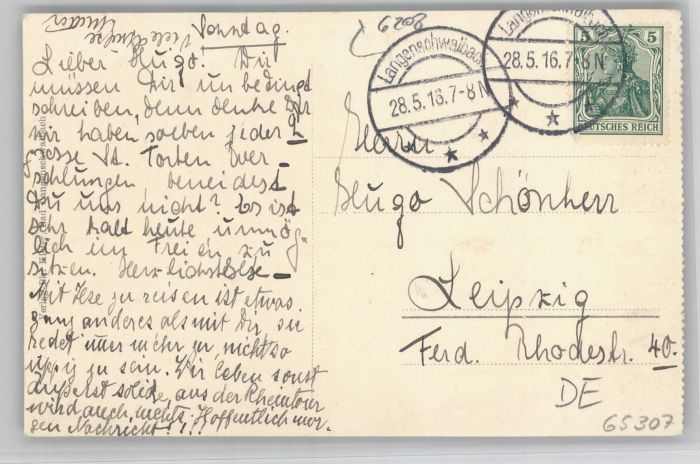 Sonntag.
Viele Grüsse
Lieber Hugo. Wir
müssen Dir unbedingt
schreiben, denn denke Dir
wir haben soeben jeder 2
grosse St. Torten ver-
schlungen beneidest
Du uns nicht? Es ist
sehr kalt heute unmög-
lich im Freien zu
sitzen. Herzlichst Ilse
Mit Ilse zu reisen ist etwas
ganz anderes als mit Dir, sie
redet immer mehr zu, nicht so
üppig zu sein. Wir leben sonst
äusserst solide, aus der Rheintour
wird auch nichts. Hoffentlich mor-
gen Nachricht!!!
Langenschwalbach
28.5.16.7-8N
Langenschwalbach
28.5.16.7-8N
5 5
DEUTSCHES REICH
Herrn
Hugo Schönherr
Leipzig
Ferd. Rhodestr. 40.
DE
65307